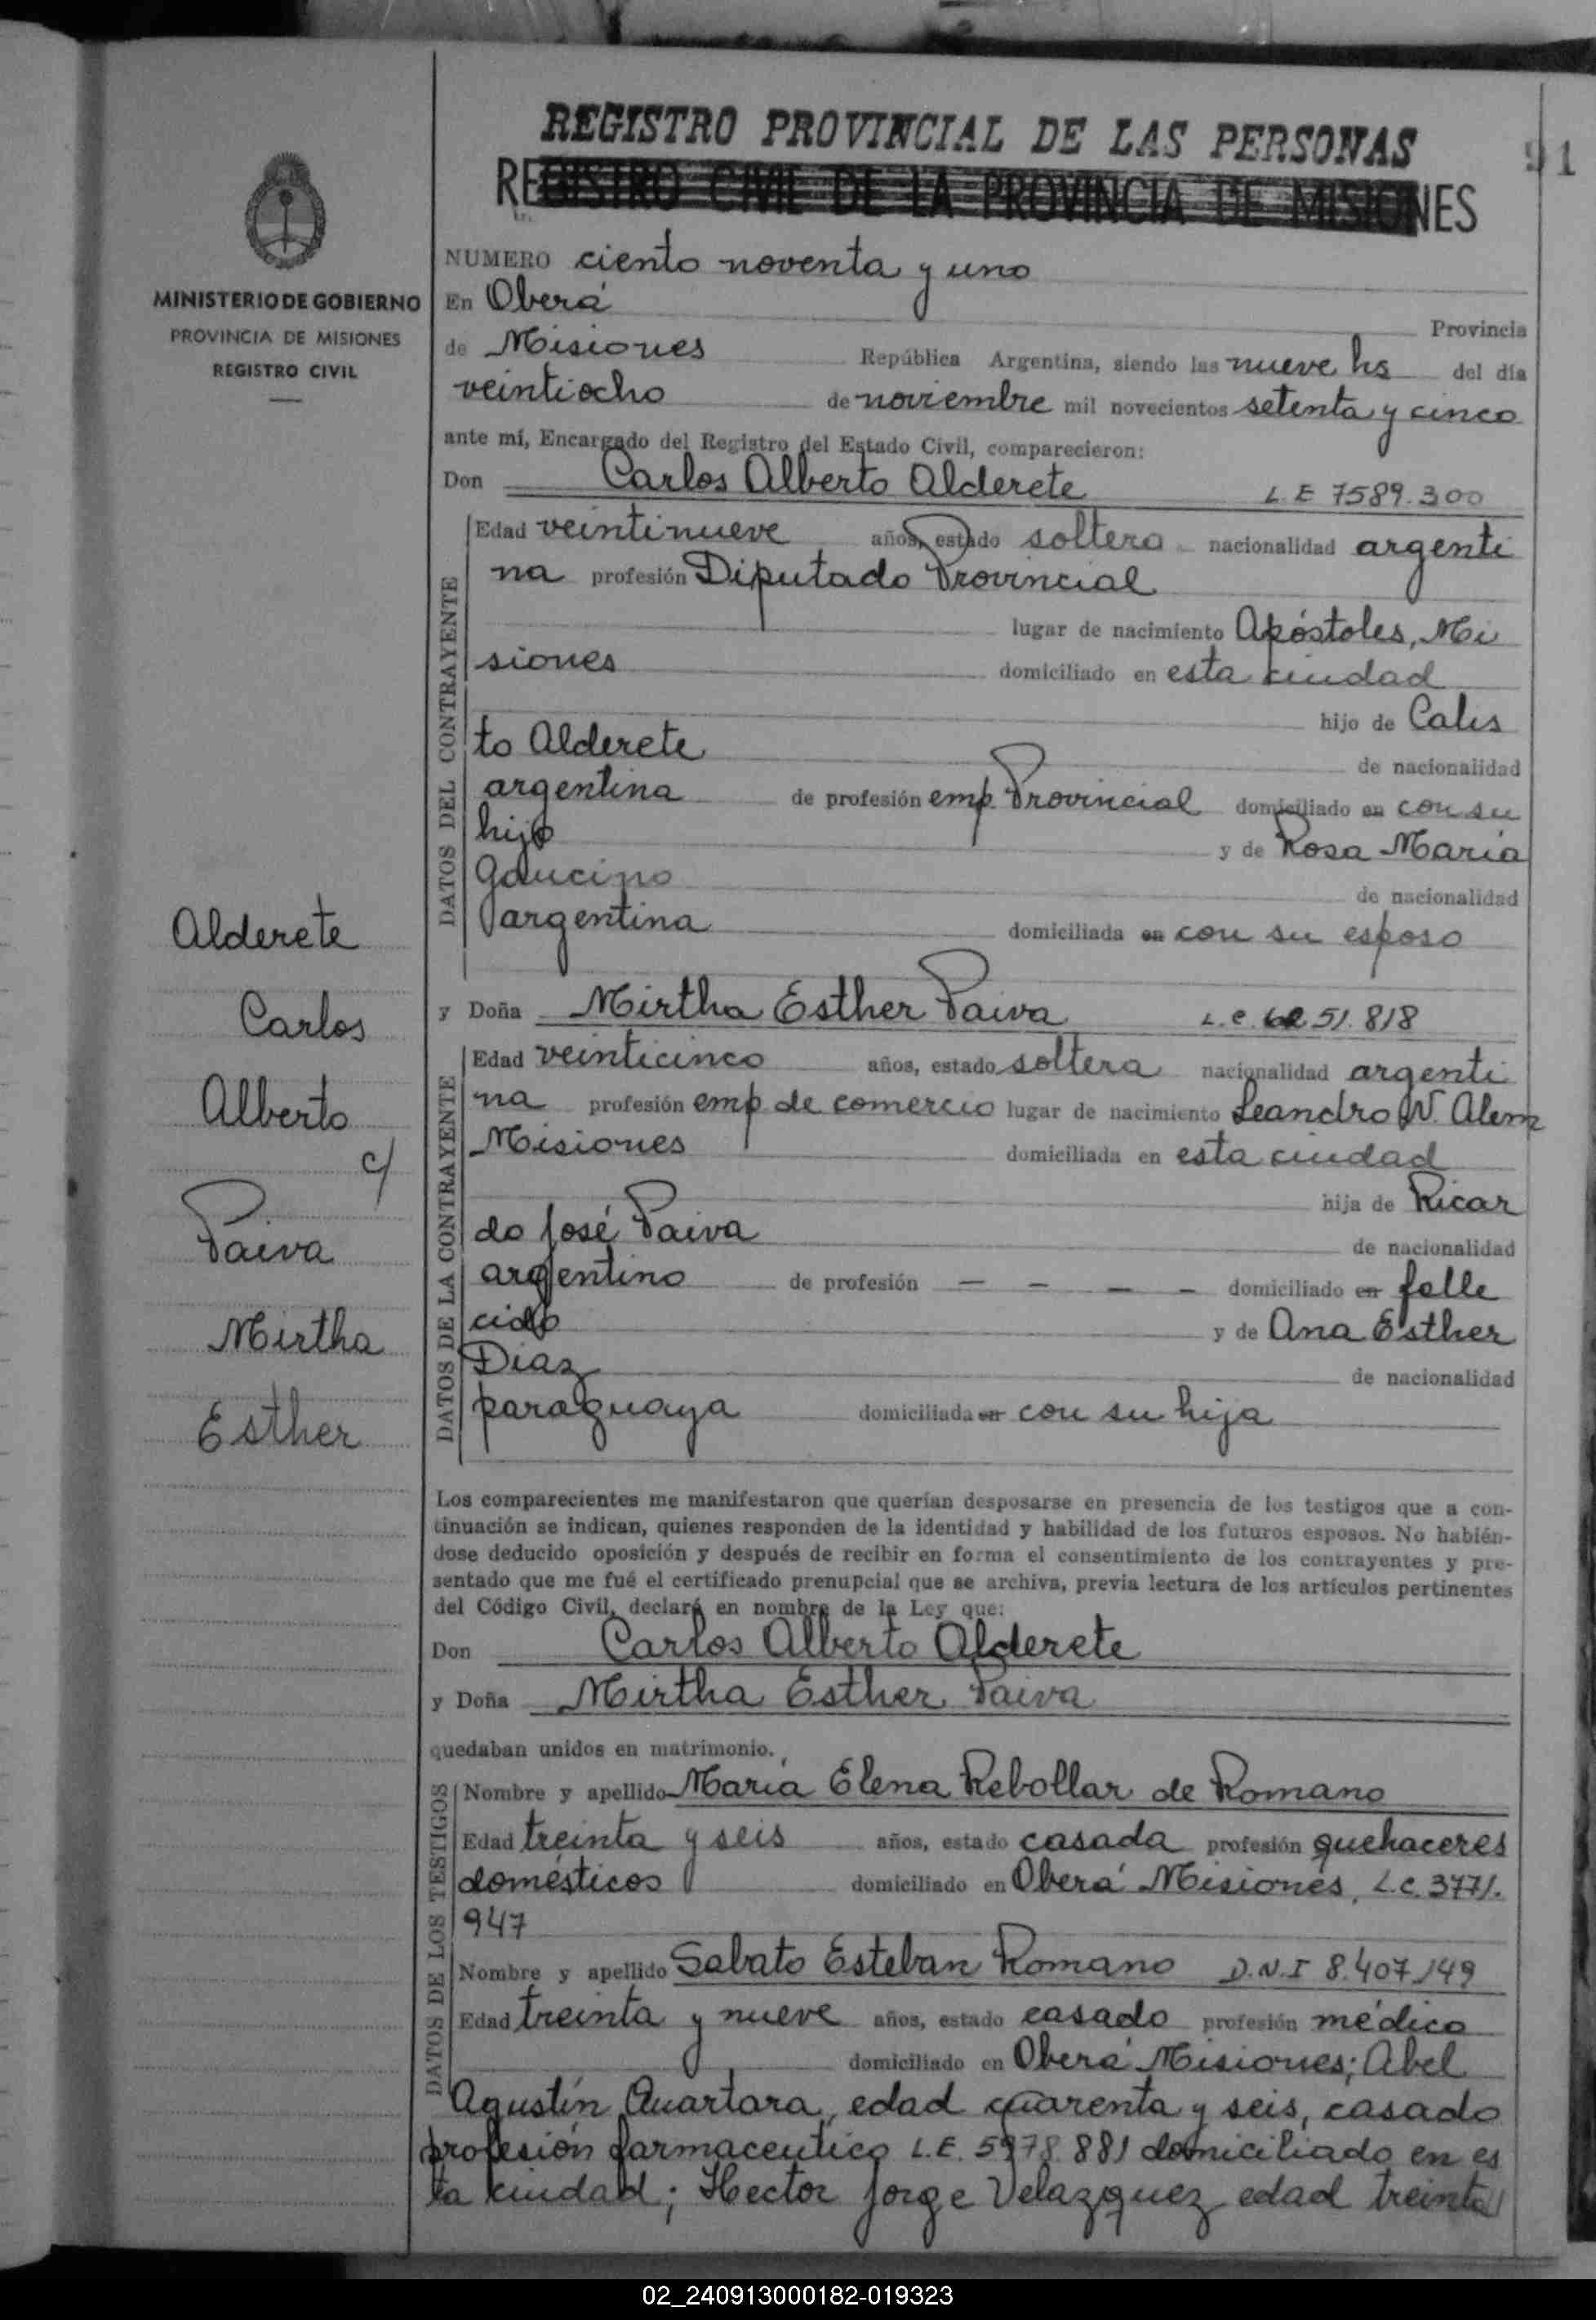 REGISTRO PROVINCIAL DE LAS PERSONAS
91
REGISTRO CIVIL DE LA PROVINCIA DE MISIONES
MINISTERIO DE GOBIERNO
PROVINCIA DE MISIONES
REGISTRO CIVIL
NUMERO ciento noventa y uno
En Oberá Provincia
de Misiones República Argentina, siendo las nueve hs del día
veintiocho de noviembre mil novecientos setenta y cinco
ante mí, Encargado del Registro del Estado Civil, comparecieron:
Don Carlos Alberto Alderete L.E 7589.300
DATOS DEL CONTRAYENTE
Edad veintinueve años, estado soltero nacionalidad argenti
na profesión Diputado Provincial
lugar de nacimiento Apóstoles, Mi
siones domiciliado en esta ciudad
hijo de Calis
to Alderete de nacionalidad
argentina de profesión emp. Provincial domiciliado en con su
hijo y de Rosa María
Gaucino de nacionalidad
argentina domiciliada en con su esposo
Alderete
Carlos
Alberto
c/
Paiva
Mirtha
Esther
y Doña Mirtha Esther Paiva L.C. 51.818
DATOS DE LA CONTRAYENTE
Edad veinticinco años, estado soltera nacionalidad argenti
na profesión emp. de comercio lugar de nacimiento Leandro N. Alem
Misiones domiciliada en esta ciudad
hija de Ricar
do José Paiva de nacionalidad
argentino de profesión — — — — domiciliado en falle
cido y de Ana Esther
Diaz de nacionalidad
paraguaya domiciliada en con su hija
Los comparecientes me manifestaron que querían desposarse en presencia de los testigos que a con-
tinuación se indican, quienes responden de la identidad y habilidad de los futuros esposos. No habién-
dose deducido oposición y después de recibir en forma el consentimiento de los contrayentes y pre-
sentado que me fué el certificado prenupcial que se archiva, previa lectura de los artículos pertinentes
del Código Civil, declaré en nombre de la Ley que:
Don Carlos Alberto Alderete
y Doña Mirtha Esther Paiva
quedaban unidos en matrimonio.
DATOS DE LOS TESTIGOS
Nombre y apellido María Elena Rebollar de Romano
Edad treinta y seis años, estado casada profesión quehaceres
domésticos domiciliado en Oberá Misiones, L.C. 3771.
947
Nombre y apellido Sabato Esteban Romano D.N.I 8.407.149
Edad treinta y nueve años, estado casado profesión médico
domiciliado en Oberá Misiones; Abel
Agustín Quartara, edad cuarenta y seis, casado
profesión farmaceutico L.E. 5978.881 domiciliado en es
ta ciudad; Hector Jorge Velazquez edad treinta
02_240913000182-019323